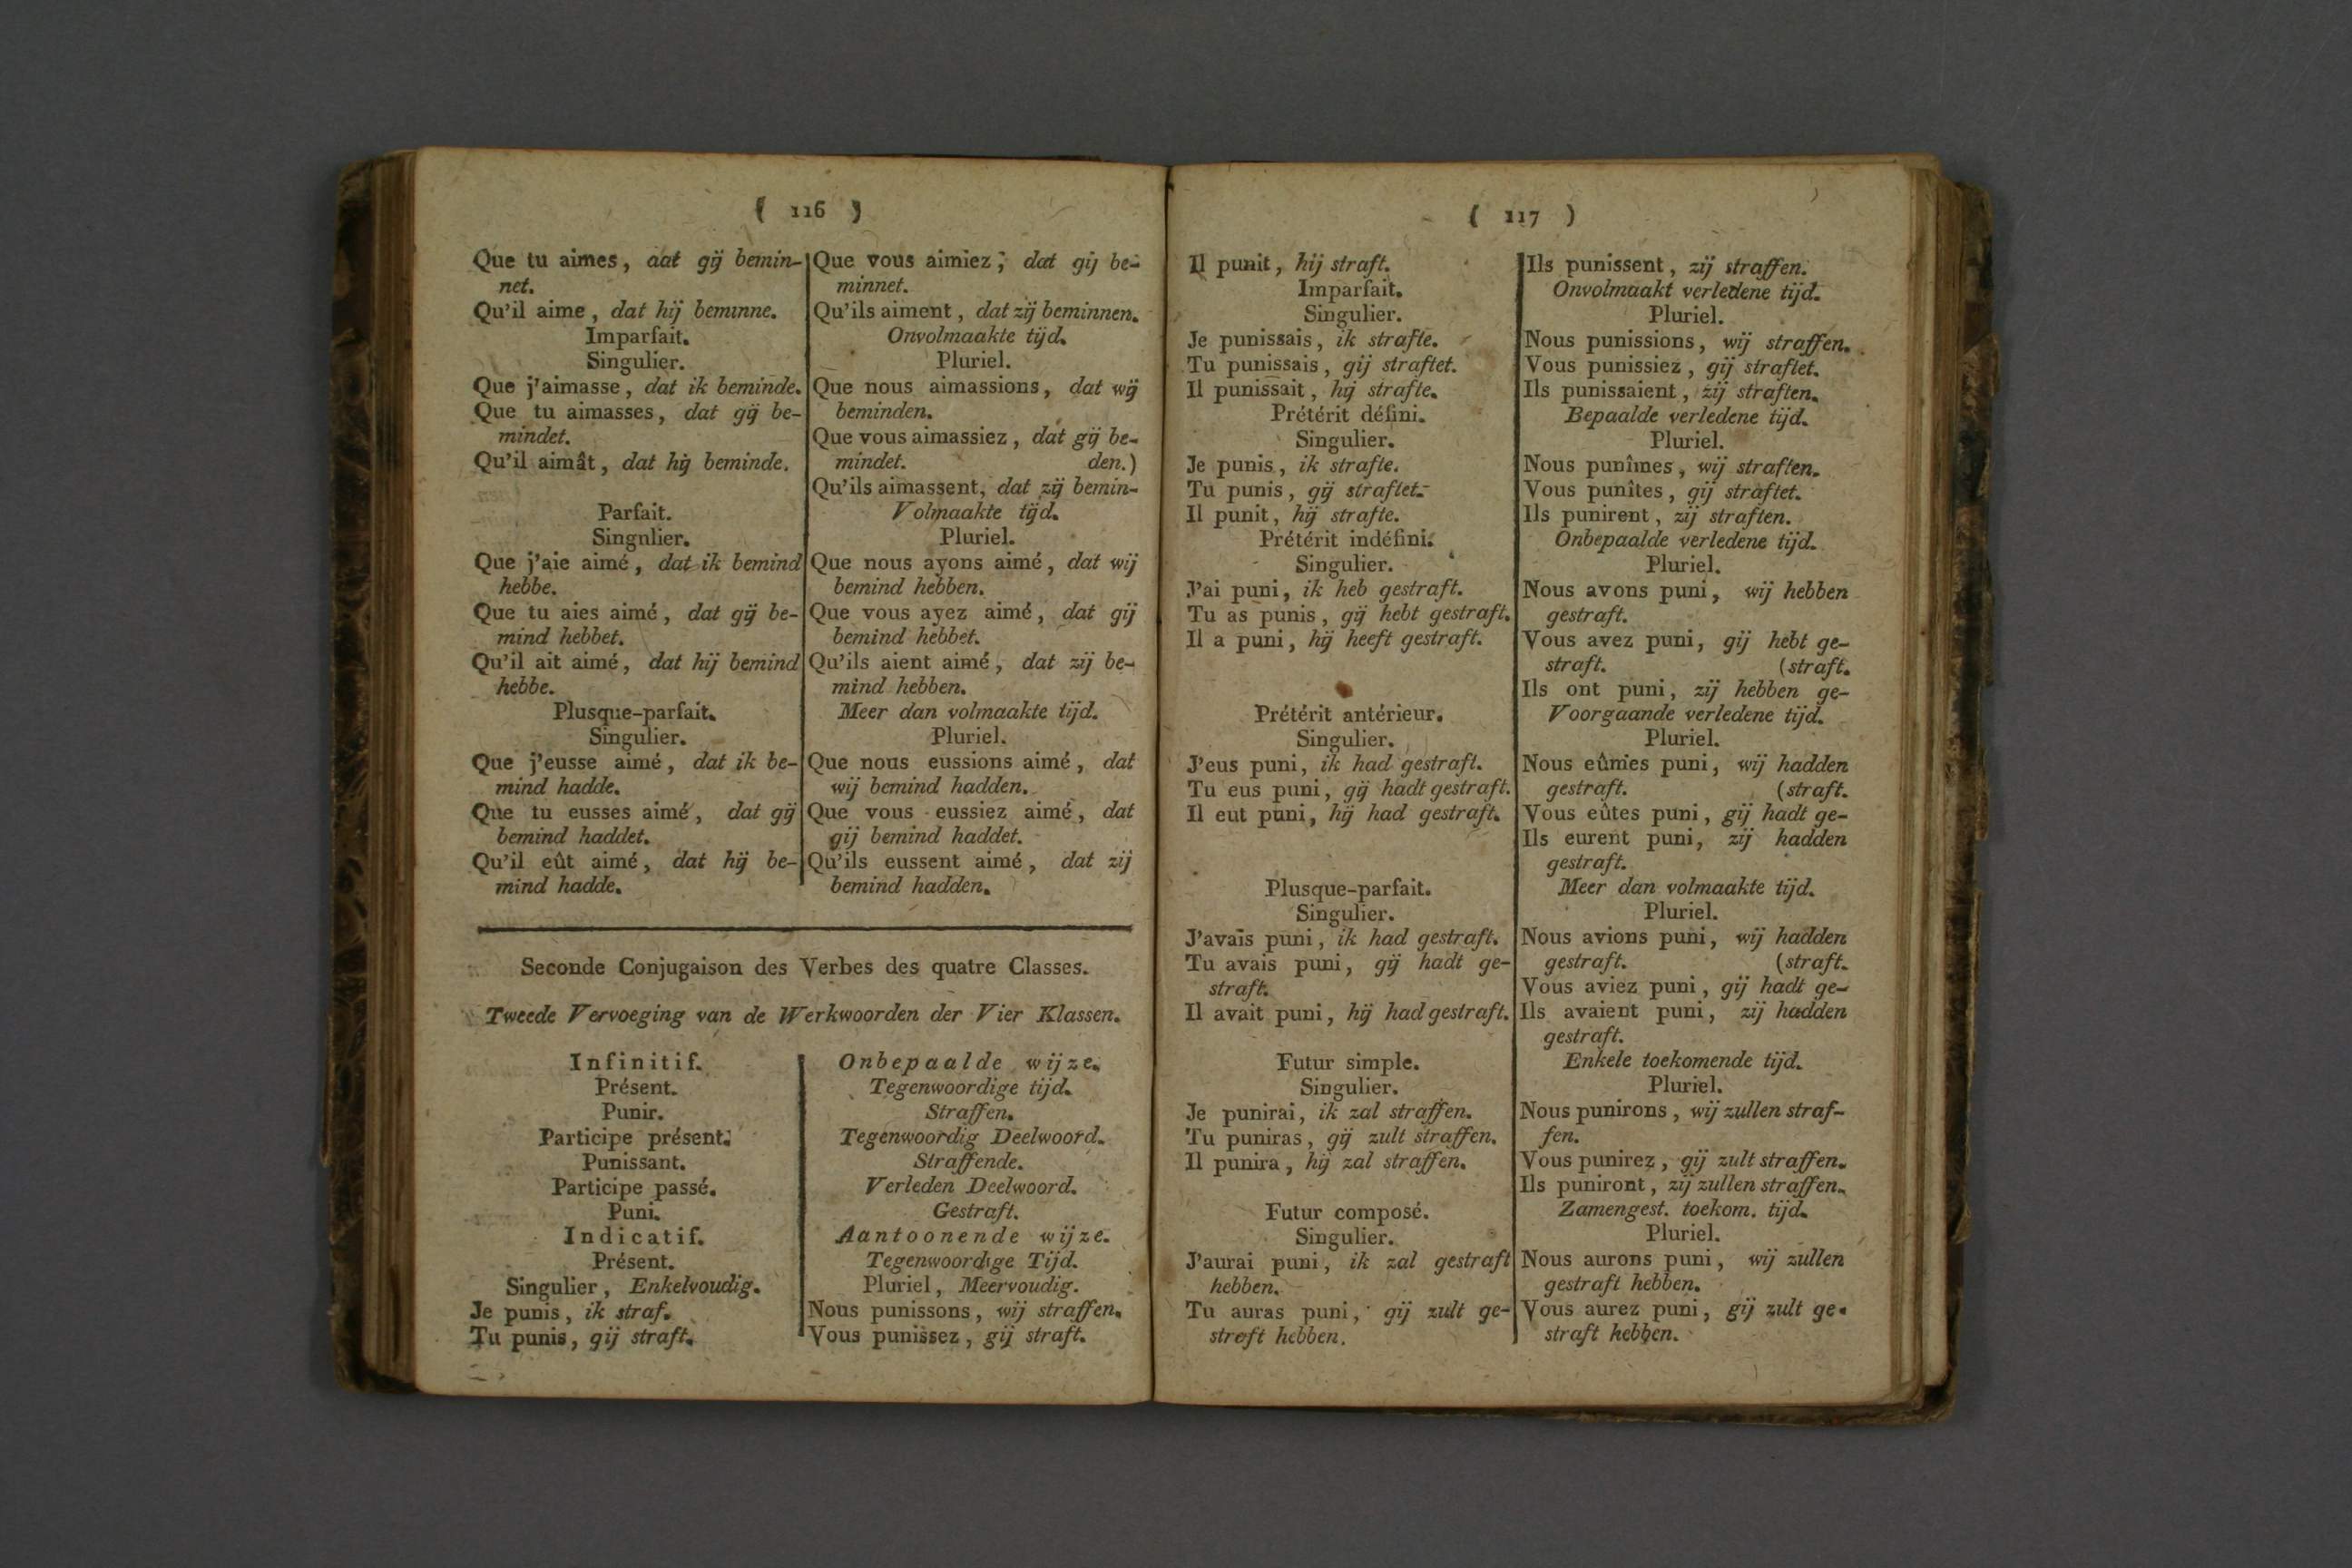 ( 116 )
Que tu aimes, aat gij bemin-
net.
Qu'il aime, dat hij beminne.
Imparfait.
Singulier.
Que j'aimasse, dat ik beminde.
Que tu aimasses, dat gij be-
mindet.
Qu'il aimât, dat hij beminde.
Parfait.
Singnlier.
Que j'aie aimé, dat ik bemind
hebbe.
Que tu aies aimé, dat gij be-
mind hebbet.
Qu'il ait aimé, dat hij bemind
hebbe.
Plusque-parfait.
Singulier.
Que j'eusse aimé, dat ik be-
mind hadde.
Que tu eusses aimé, dat gij
bemind haddet.
Qu'il eût aimé, dat hij be-
mind hadde.
Que vous aimiez, dat gij be-
minnet.
Qu'ils aiment, dat zij beminnen.
Onvolmaakte tijd.
Pluriel.
Que nous aimassions, dat wij
beminden.
Que vous aimassiez, dat gij be-
mindet. den.)
Qu'ils aimassent, dat zij bemin-
Volmaakte tijd.
Pluriel.
Que nous ayons aimé, dat wij
bemind hebben.
Que vous ayez aimé, dat gij
bemind hebbet.
Qu'ils aient aimé, dat zij be-
mind hebben.
Meer dan volmaakte tijd.
Pluriel.
Que nous eussions aimé, dat
wij bemind hadden.
Que vous eussiez aimé, dat
gij bemind haddet.
Qu'ils eussent aimé, dat zij
bemind hadden.
Seconde Conjugaison des Verbes des quatre Classes.
Tweede Vervoeging van de Werkwoorden der Vier Klassen.
Infinitif.
Présent.
Punir.
Participe présent.
Punissant.
Participe passé.
Puni.
Indicatif.
Présent.
Singulier, Enkelvoudig.
Je punis, ik straf.
Tu punis, gij straft.
Onbepaalde wijze.
Tegenwoordige tijd.
Straffen.
Tegenwoordig Deelwoord.
Straffende.
Verleden Deelwoord.
Gestraft.
Aantoonende wijze.
Tegenwoordige Tijd.
Pluriel, Meervoudig.
Nous punissons, wij straffen.
Vous punissez, gij straft.
( 117 )
Il punit, hij straft.
Imparfait.
Singulier.
Je punissais, ik strafte.
Tu punissais, gij straftet.
Il punissait, hij strafte.
Prétérit défini.
Singulier.
Je punis, ik strafte.
Tu punis, gij straftet.
Il punit, hij strafte.
Prétérit indéfini.
Singulier.
J'ai puni, ik heb gestraft.
Tu as punis, gij hebt gestraft.
Il a puni, hij heeft gestraft.
Prétérit antérieur.
Singulier.
J'eus puni, ik had gestraft.
Tu eus puni, gij hadt gestraft.
Il eut puni, hij had gestraft.
Plusque-parfait.
Singulier.
J'avais puni, ik had gestraft.
Tu avais puni, gij hadt ge-
straft.
Il avait puni, hij had gestraft.
Futur simple.
Singulier.
Je punirai, ik zal straffen.
Tu puniras, gij zult straffen.
Il punira, hij zal straffen.
Futur composé.
Singulier.
J'aurai puni, ik zal gestraft
hebben.
Tu auras puni, gij zult ge-
straft hebben.
Ils punissent, zij straffen.
Onvolmaakt verledene tijd.
Pluriel.
Nous punissions, wij straffen.
Vous punissiez, gij straftet.
Ils punissaient, zij straften.
Bepaalde verledene tijd.
Pluriel.
Nous punîmes, wij straften.
Vous punîtes, gij straftet.
Ils punirent, zij straften.
Onbepaalde verledene tijd.
Pluriel.
Nous avons puni, wij hebben
gestraft.
Vous avez puni, gij hebt ge-
straft. (straft.
Ils ont puni, zij hebben ge-
Voorgaande verledene tijd.
Pluriel.
Nous eûmes puni, wij hadden
gestraft. (straft.
Vous eûtes puni, gij hadt ge-
Ils eurent puni, zij hadden
gestraft.
Meer dan volmaakte tijd.
Pluriel.
Nous avions puni, wij hadden
gestraft. (straft.
Vous aviez puni, gij hadt ge-
Ils avaient puni, zij hadden
gestraft.
Enkele toekomende tijd.
Pluriel.
Nous punirons, wij zullen straf-
fen.
Vous punirez, gij zult straffen.
Ils puniront, zij zullen straffen.
Zamengest. toekom. tijd.
Pluriel.
Nous aurons puni, wij zullen
gestraft hebben.
Vous aurez puni, gij zult ge-
straft hebben.